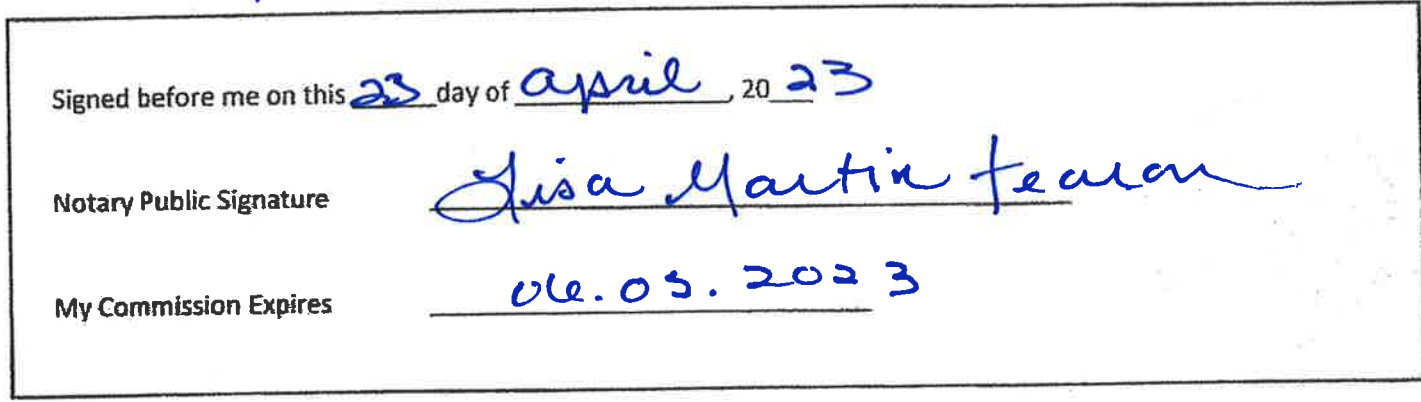 Signed before me on this 23 day of april, 20 23
Notary Public Signature Lisa Martin Fearon
My Commission Expires 06.03.2023